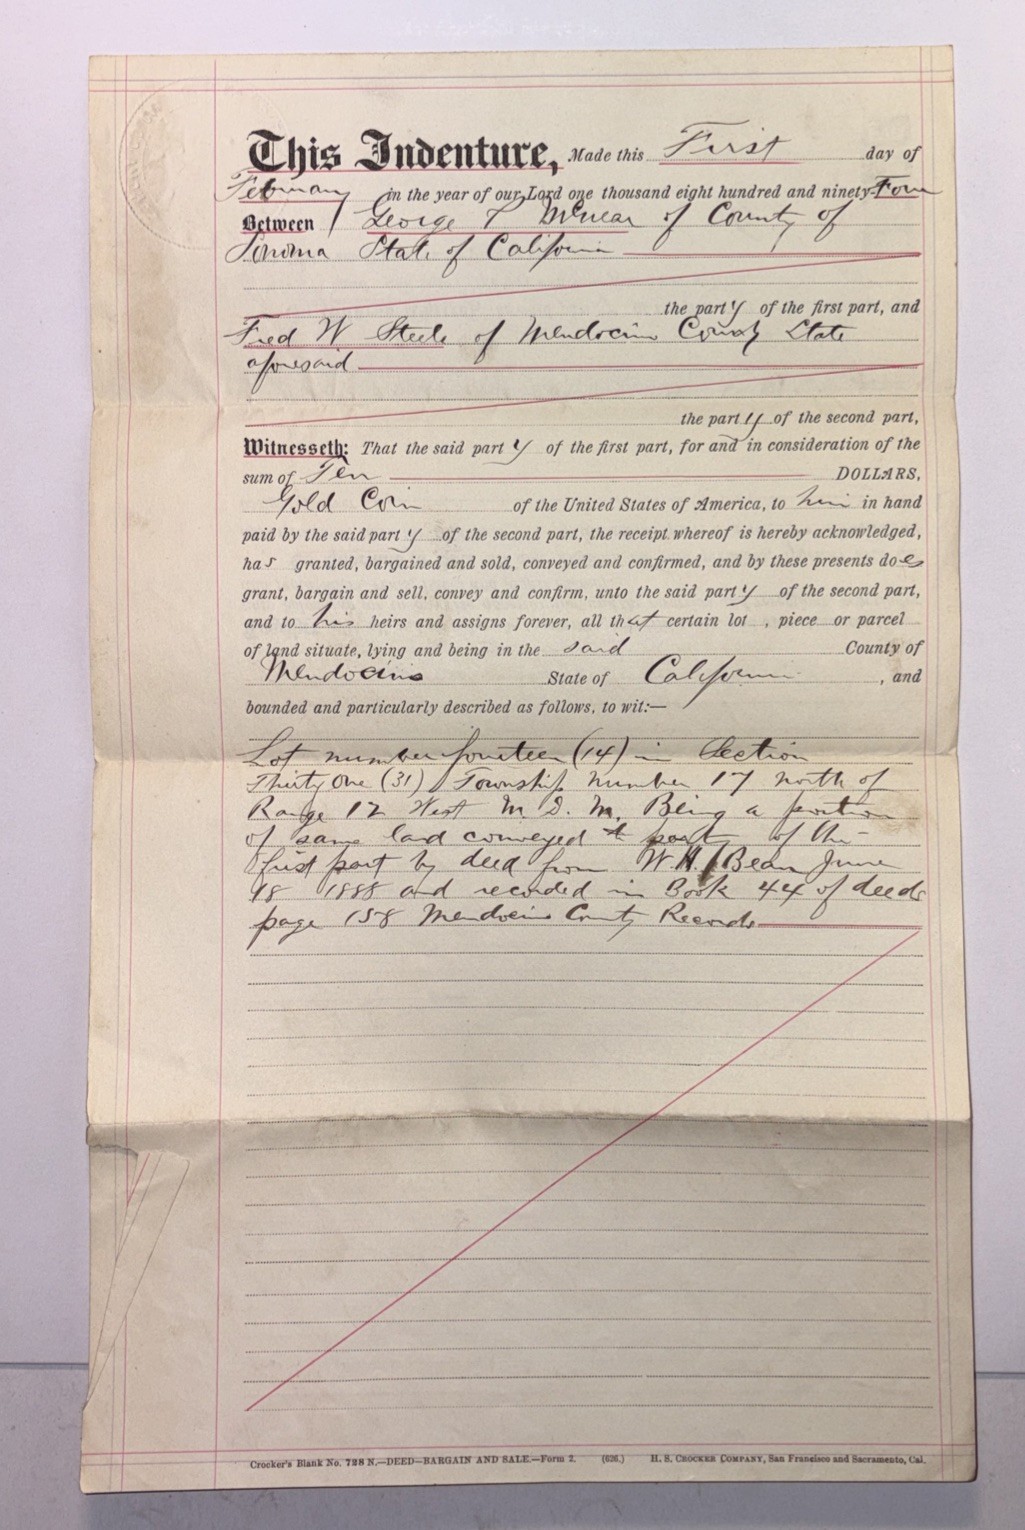 This Indenture, Made this First day of
February in the year of our Lord one thousand eight hundred and ninety-Four
Between George P McNear of County of
Sonoma State of California
the party of the first part, and
Fred W Steele of Mendocino County State
aforesaid
the party of the second part,
Witnesseth: That the said party of the first part, for and in consideration of the
sum of Ten DOLLARS,
Gold Coin of the United States of America, to him in hand
paid by the said party of the second part, the receipt whereof is hereby acknowledged,
has granted, bargained and sold, conveyed and confirmed, and by these presents does
grant, bargain and sell, convey and confirm, unto the said party of the second part,
and to his heirs and assigns forever, all that certain lot , piece or parcel
of land situate, lying and being in the said County of
Mendocino State of California , and
bounded and particularly described as follows, to wit:—
Lot number fourteen (14) in Section
Thirty One (31) Township number 17 north of
Range 12 West M. D. M. Being a portion
of same land conveyed to party of the
first part by deed from W. H. Bean June
18 1888 and recorded in Book 44 of deeds
page 158 Mendocino County Records
Crocker's Blank No. 728 N.—DEED—BARGAIN AND SALE.—Form 2. (626.) H. S. CROCKER COMPANY, San Francisco and Sacramento, Cal.